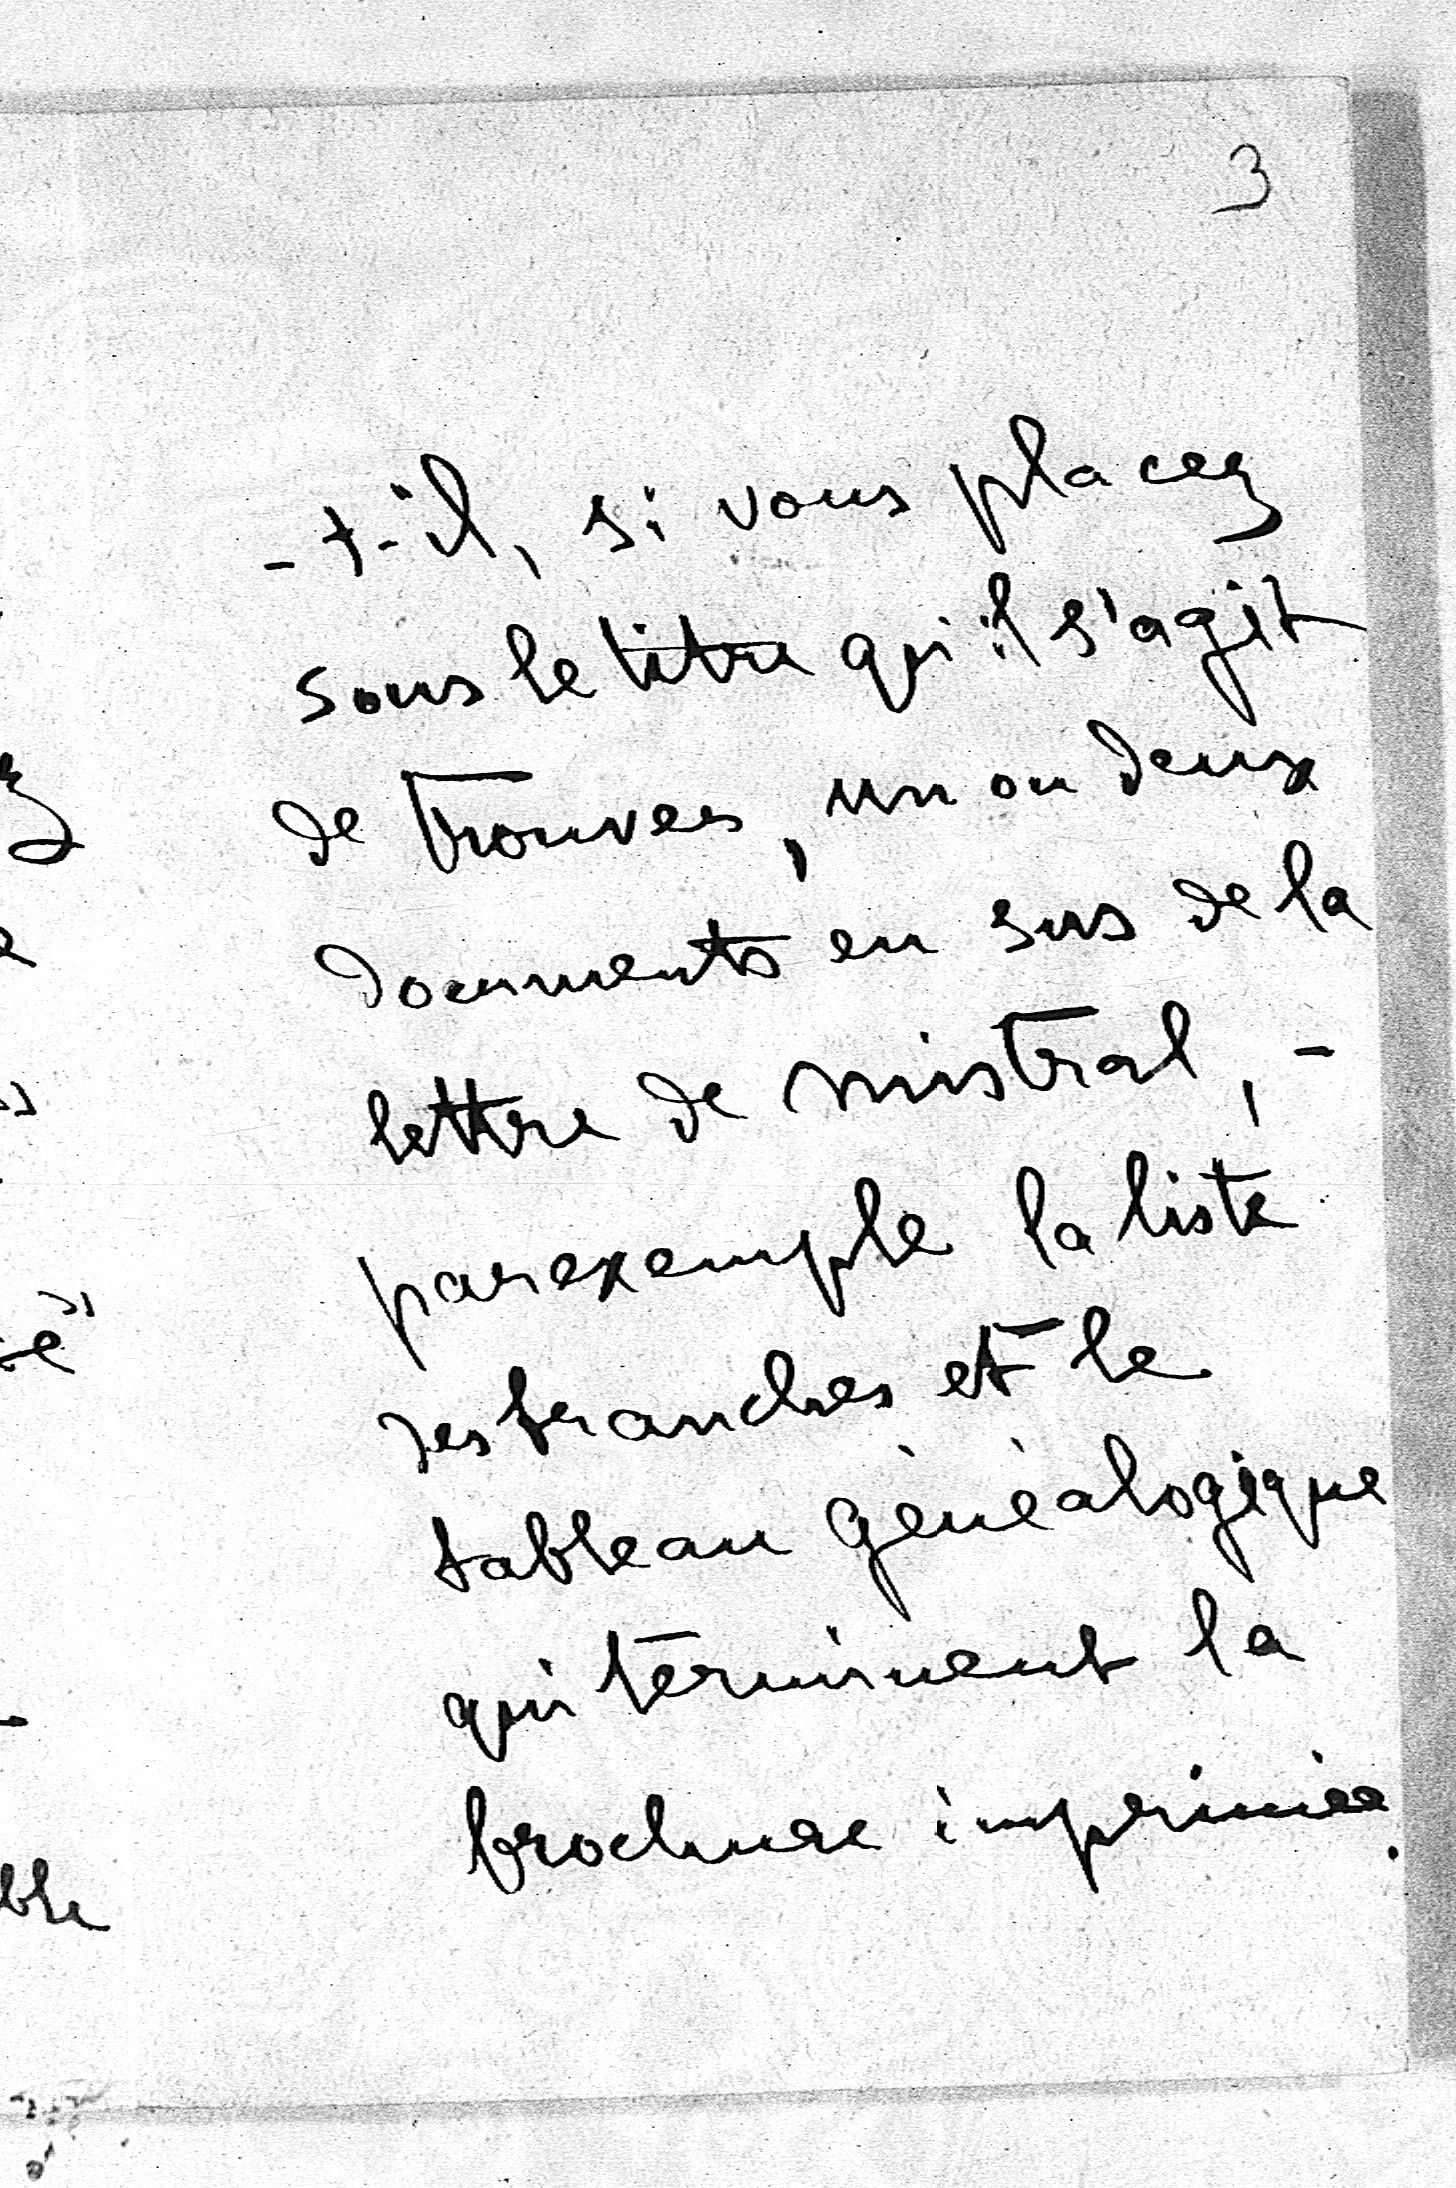 3
-t-il, si vous placez
sous le titre qu'il s'agit
de trouver, un ou deux
documents en sus de la
lettre de Mistral, -
par exemple la liste
des branches et le
tableau généalogique
qui terminent la
brochure imprimée.